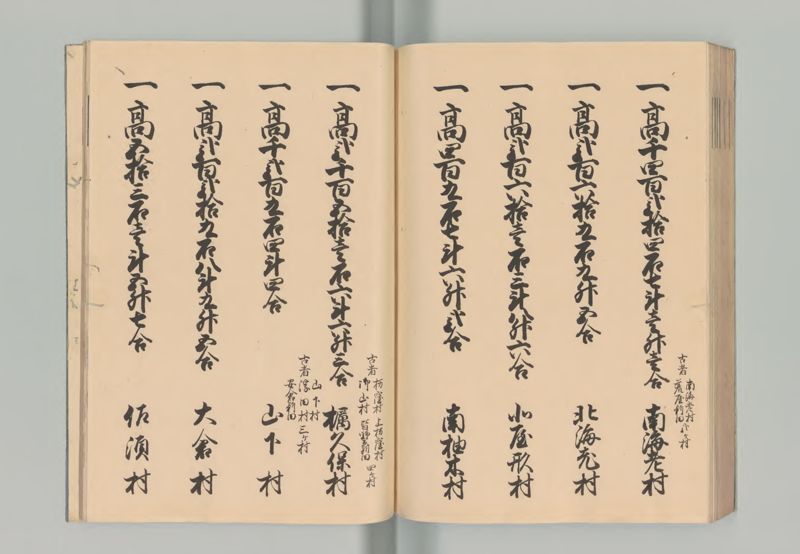 古者 南海老村
荒屋新田 弐ケ村
一高千四百弐拾四石七斗壱升壱合 南海老村
一高弐百六拾九石九升五合 北海老村
一高弐百六拾壱石三斗八升六合 北屋形村
一高四百九石七斗六升弐合 南柚木村
古者 栃窪村 上栃窪村
御山村 四ケ村
一高弐千百五拾壱石六斗六升三合 久保村
古者 山下村
浮田村 三ケ村
安倉新田
一高千弐百九石四斗四合 山下村
一高弐百弐拾九石八斗九升五合 大倉村
一高五拾三石壱斗五升七合 佐須村